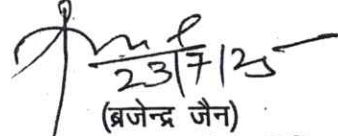 23/7/25
(ब्रजेन्द्र जैन)